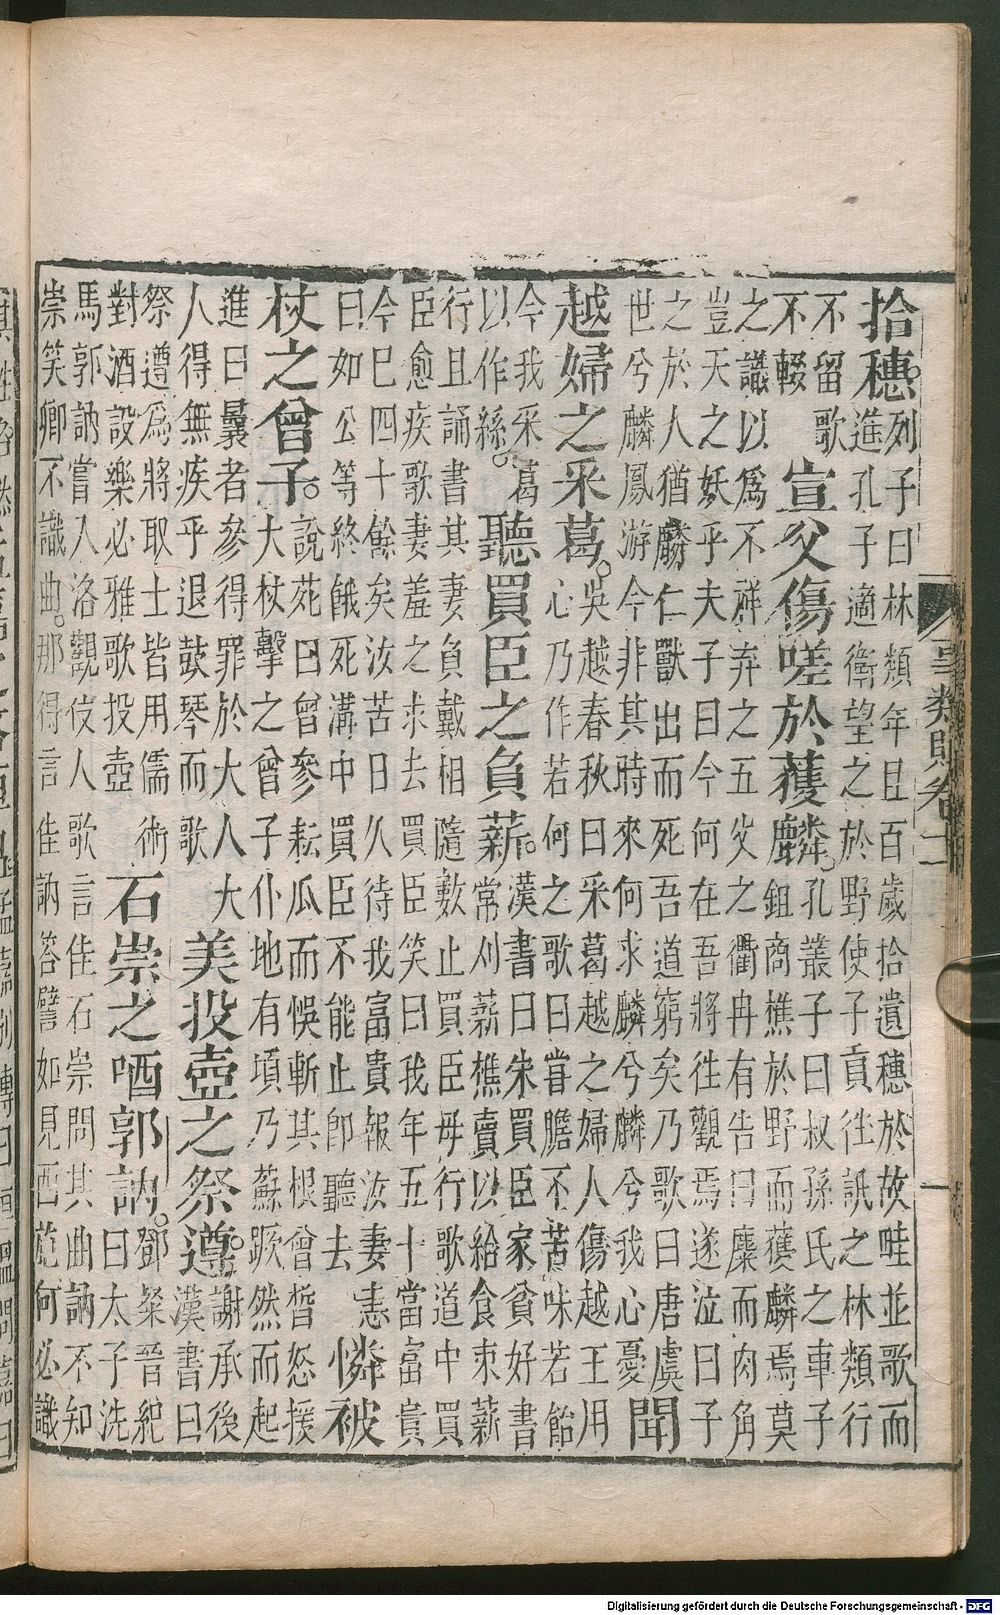 事類賦卷十一
拾穗。列子曰林類年且百歲拾遺穗於故哇並歌而
進孔子適衛望之於野使子貢往訊之林類行
不留歌
不輟
宣父傷嗟於獲麟。孔叢子曰叔孫氏之車子
鉏商樵於野而獲麟焉莫
之識以爲不祥弃之五父之衢冉有告曰麋而肉角
豈天之妖乎夫子曰今何在吾將往觀焉遂泣曰子
之於人猶麟仁獸出而死吾道窮矣乃歌曰唐虞
世兮麟鳳游今非其時來何求麟兮麟兮我心憂
聞
越婦之采葛。吳越春秋曰采葛越之婦人傷越王用
心乃作若何之歌曰甞膽不苦味若飴
今我采葛
以作絲。
聽買臣之負薪。漢書曰朱買臣家貧好書
常刈薪樵賣以給食朿薪
行且誦書其妻負戴相隨數止買臣毋行歌道中買
臣愈疾歌妻羞之求去買臣笑曰我年五十當富貴
今巳四十餘矣汝苦日久待我富貴報汝妻恚
曰如公等終餓死溝中買臣不能止即聽去
憐被
杖之曾子。說苑曰曾參耘瓜而悞斬其根曾晳怒援
大杖擊之曾子仆地有頃乃蘇蹶然而起
進曰曩者參得罪於大人大
人得無疾乎退鼓琴而歌
美投壺之祭遵。謝承後
漢書曰
祭遵爲將取士皆用儒術
對酒設樂必雅歌投壺
石崇之哂郭訥。鄧粲晉紀
曰太子洗
馬郭訥嘗入洛觀伎人歌言佳石崇問其曲訥不知
崇笑卿不識曲。那得言佳訥答譬如見西施何必識
Digitalisierung gefördert durch die Deutsche Forschungsgemeinschaft - DFG